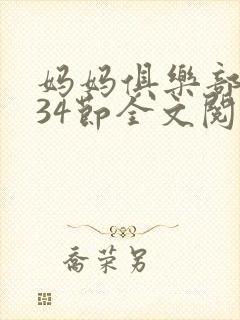 妈妈俱樂部
34節全文閱
喬荣另